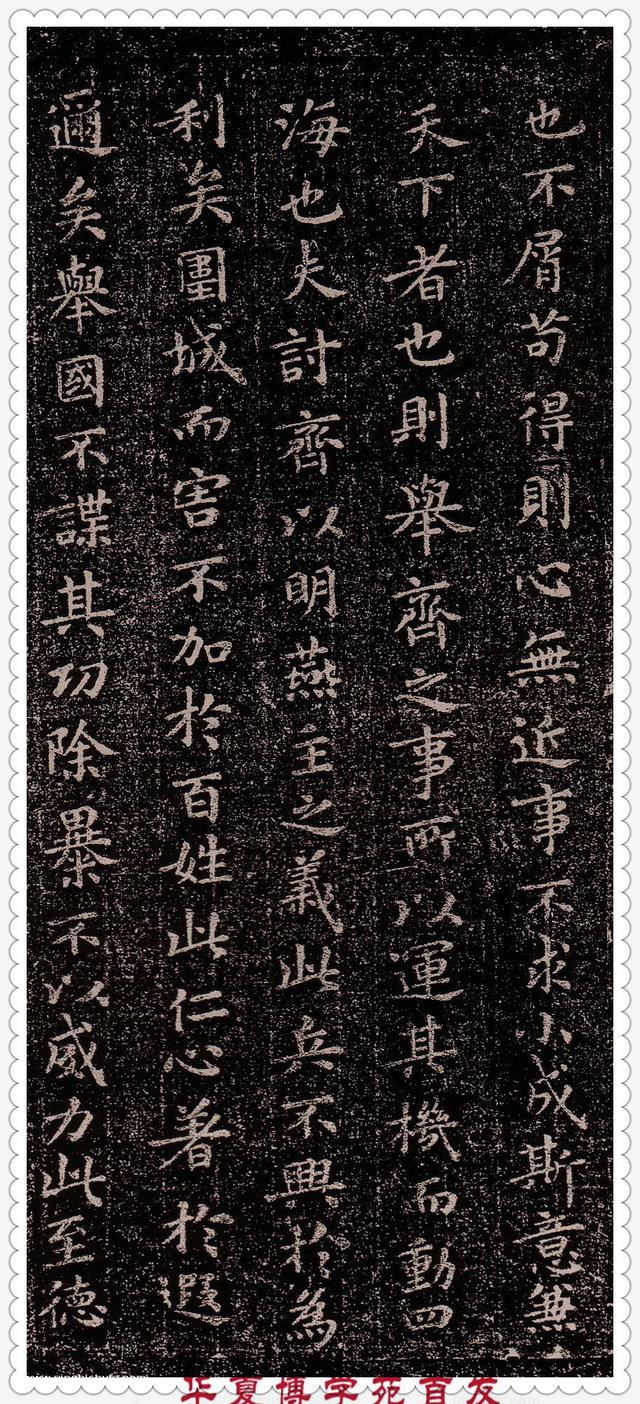 也不屑苟得則心無近事不求小成斯意兼
天下者也則舉齊之事所以運其機而動四
海也夫討齊以明燕主之義此兵不興於為
利矣圍城而害不加於百姓此仁心著於遐
邇矣舉國不謀其功除暴不以威力此至德
华夏博学苑百友